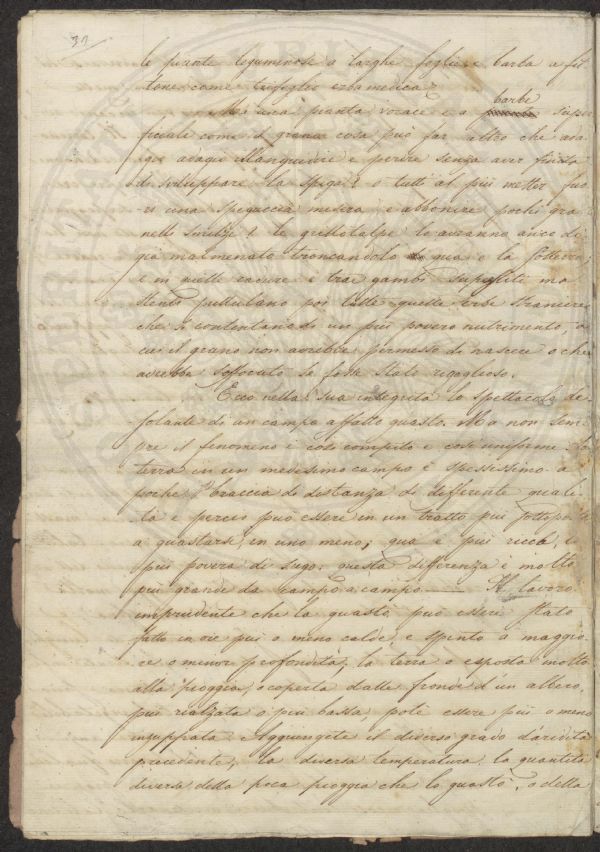 33
le piante leguminose a larghe foglie e barba a fit
tone come trifoglio erba medica?
Ma una pianta vorace e a barbe super
ficiali come il grano cosa può far altro che ada
gio adagio illanguidire e perire senza aver finito
di sviluppare la spiga? o tutt'al più metter fuo
ri una spegaccia misera e abbonire pochi gra
nelli le grillotalpe lo avranno anco di
già malmenato troncandolo di qua e là
e in quelle e trai gambi
pullulano poi tutte quelle erbe straniere
che si contentano di un più povero nutrimento, a
cui il grano non avrebbe permesso di nascere o che
avrebbe soffocato se fosse stato rigoglioso.
Ecco nella sua integrità lo spettacolo de
solante di un campo affatto guasto. Ma non sem
pre il fenomeno è così compito e così uniforme. La
terra in un medesimo campo è spessissimo a
poche braccia di distanza di differente quali
tà e perciò può essere in un tratto più sottoposta
a guastarsi, in uno meno; qua è più ricca, là
più povera di sugo: questa differenza è molto
più grande da campo a campo — Il lavoro
imprudente che la guastò può essere stato
fatto in ore più o meno calde, e spinto a maggio
re o minor profondità; la terra o esposta molto
alla pioggia, o coperta dalle fronde d'un albero,
più rialzata o più bassa potè essere più o meno
inzuppata. Aggiungete il diverso grado d'aridità
precedente, la diversa temperatura la quantità
diversa della poca pioggia che lo guastò, o della